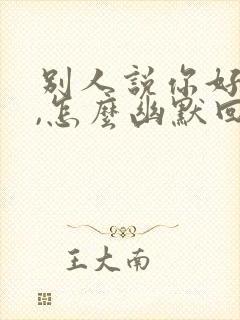 别人説你好
,怎麽幽默回
王大南